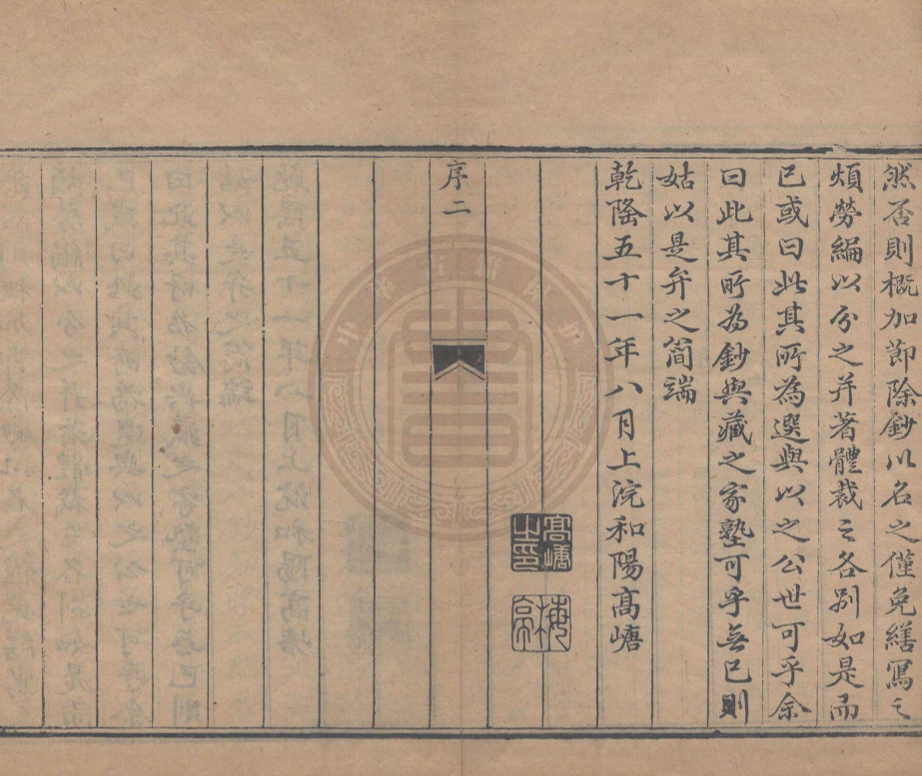 然否則概加節除鈔以名之僅免繕寫之
煩勞編以分之并著體裁之各別如是而
已或曰此其所為選與以之公世可乎余
曰此其所為鈔與藏之家塾可乎無已則
姑以是弁之簡端
乾隆五十一年八月上浣和陽高塘
高塘之印
梅亭
序二